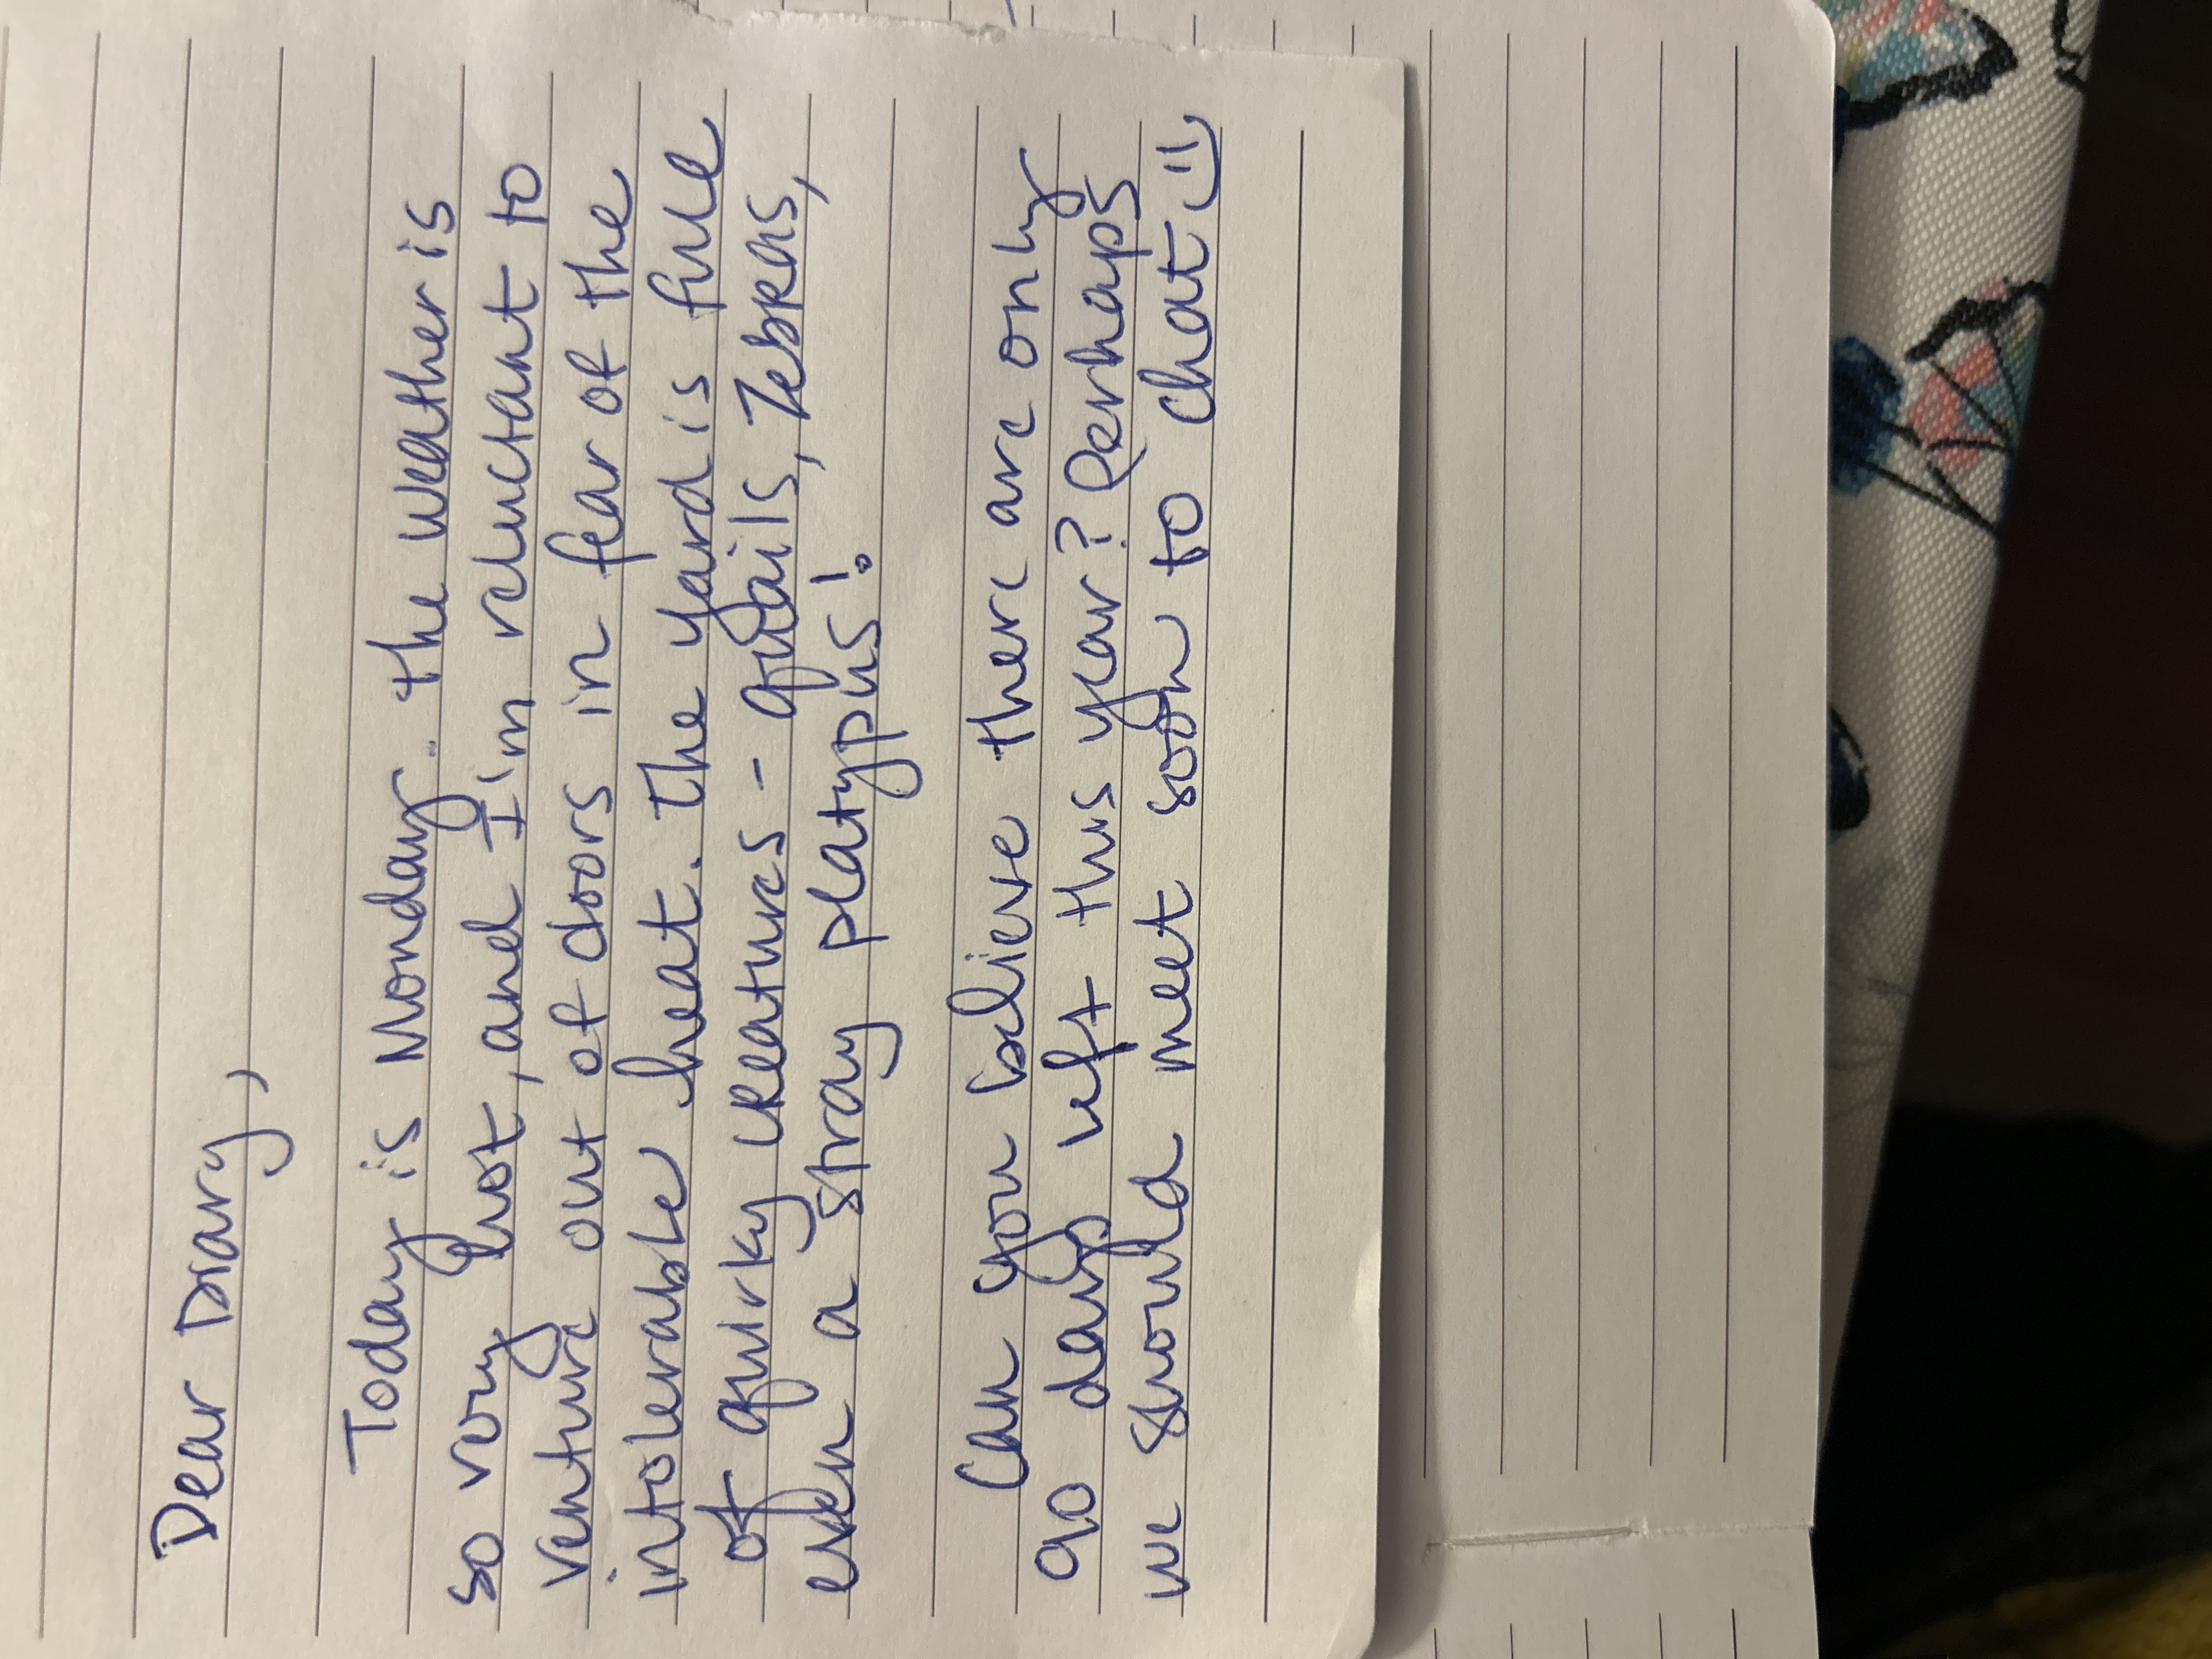 Dear Diary,
Today is Monday.. the weather is
so very hot, and I'm reluctant to
venture out of doors in fear of the
intolerable heat. The yard is full
of quirky creatures - quails, zebras,
even a stray platypus!
Can you believe there are only
90 days left this year? Perhaps
we should meet soon to chat =)